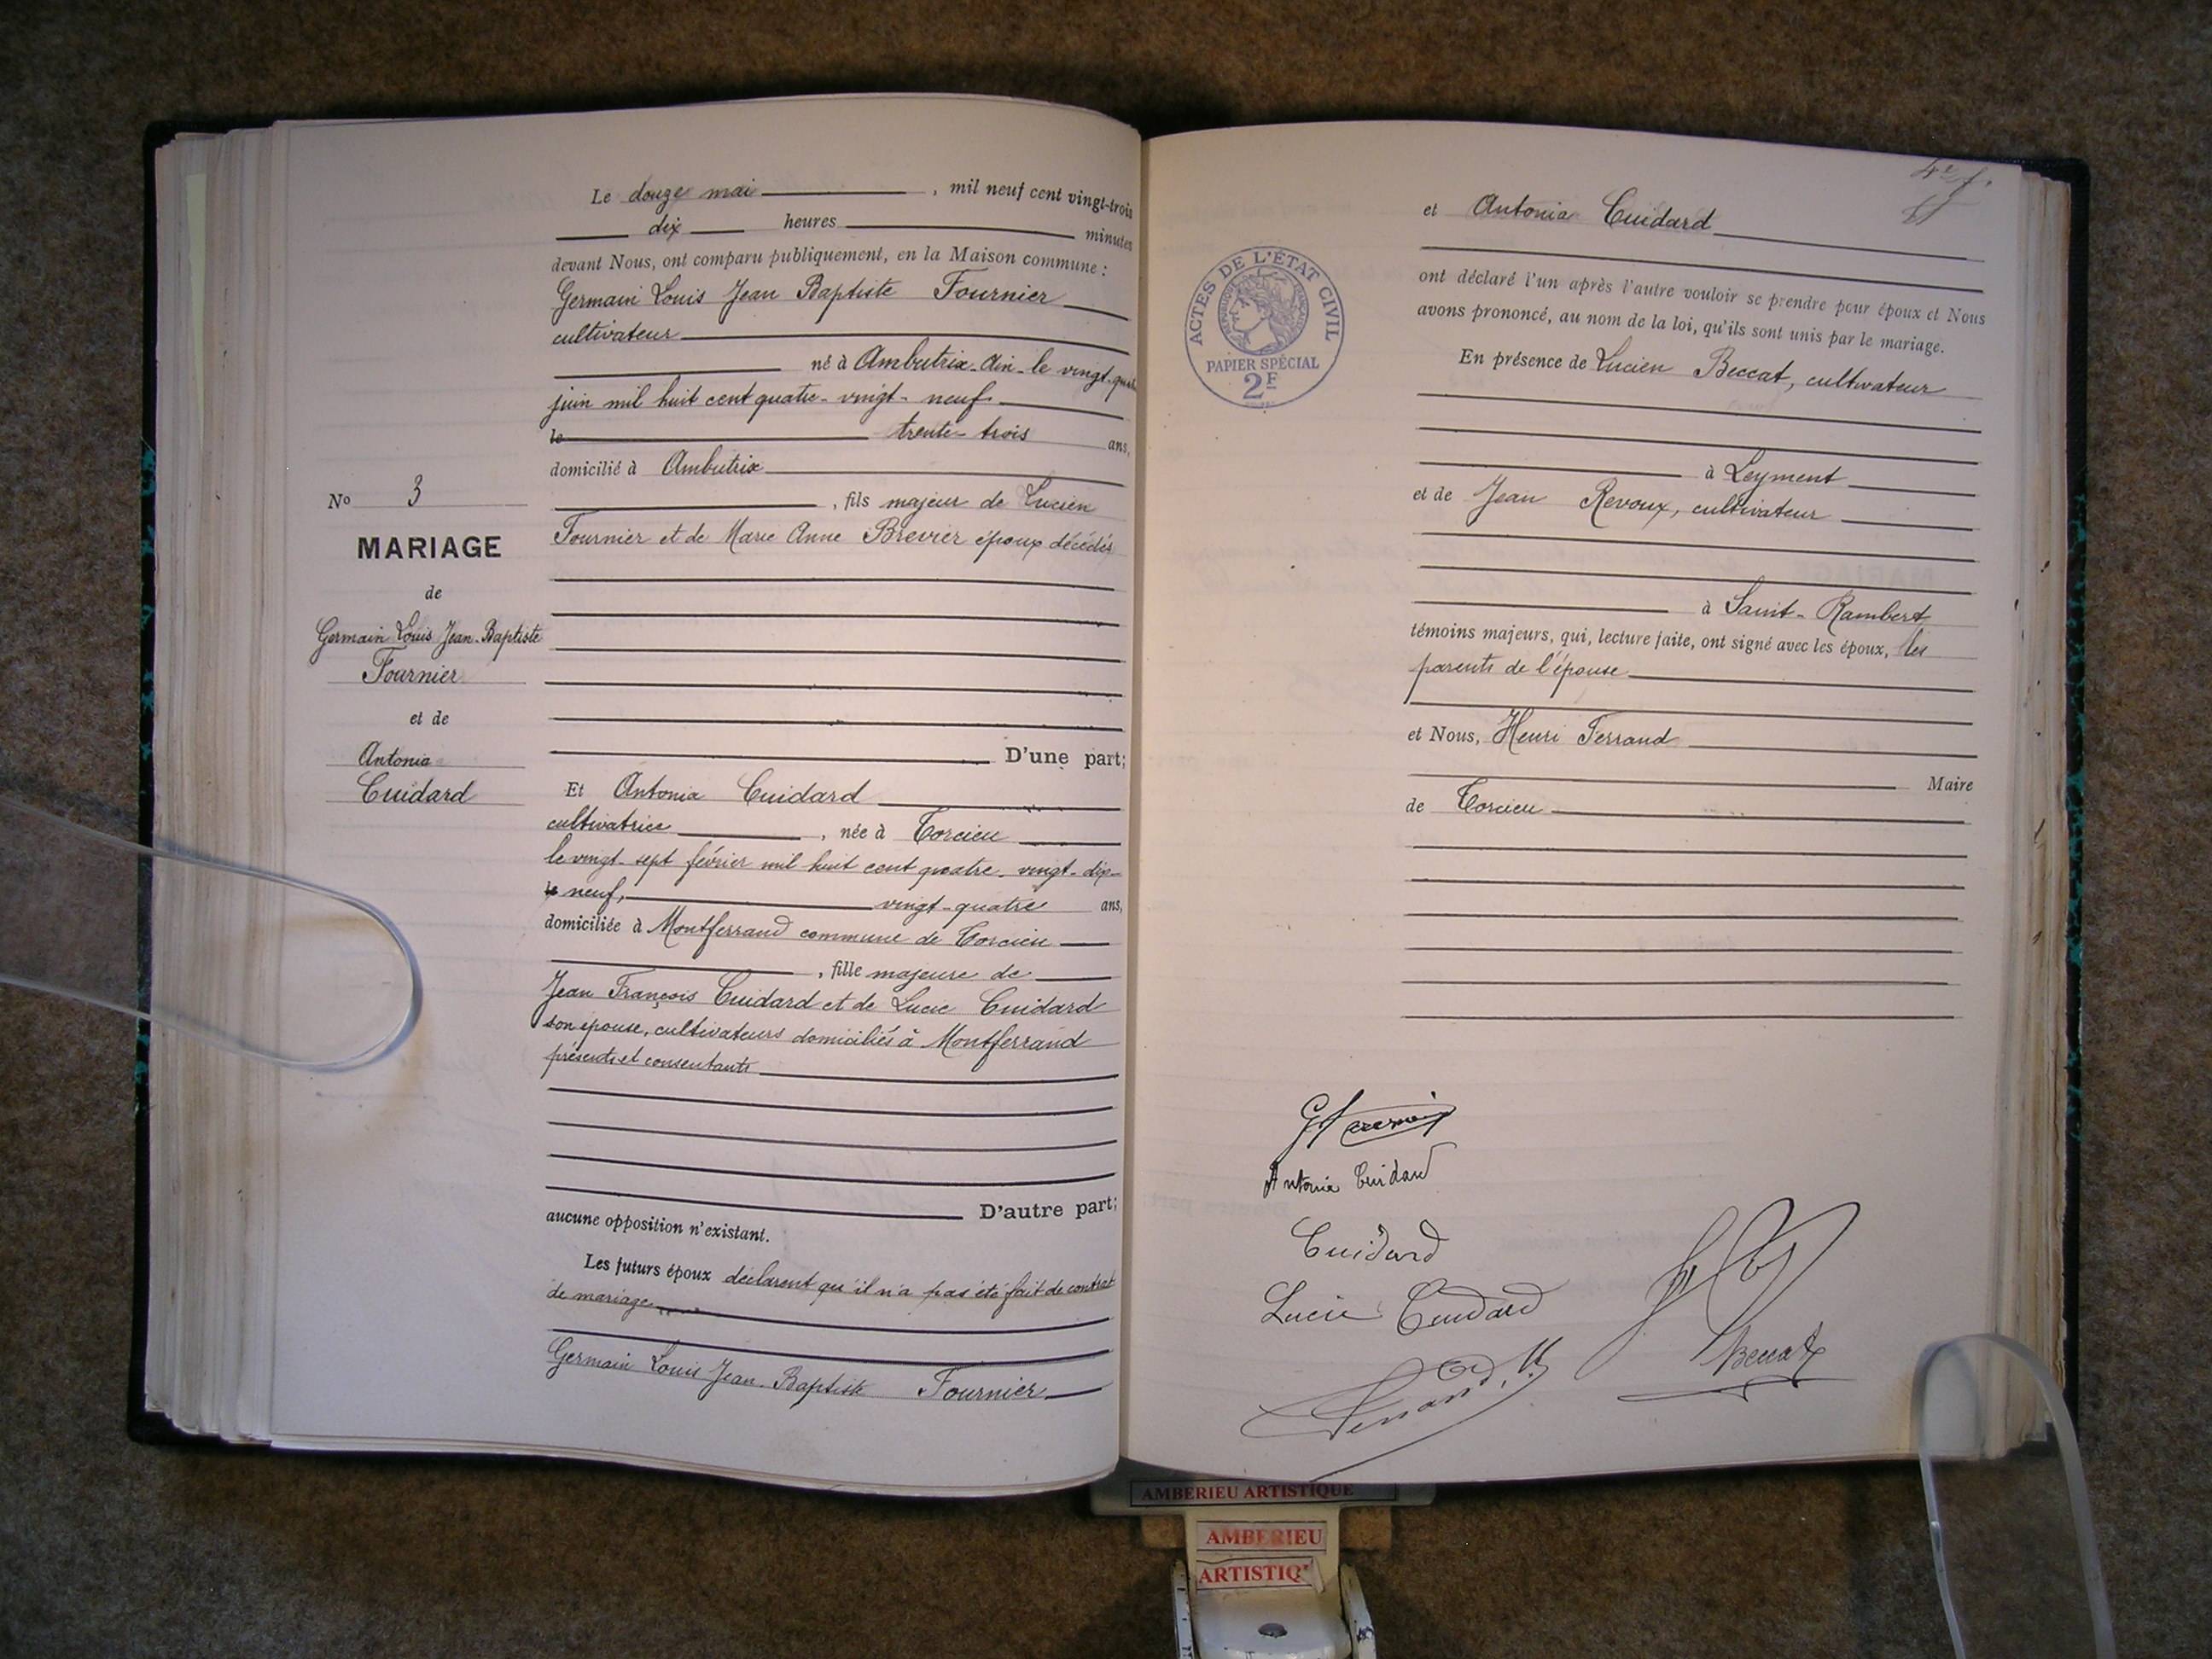 Le douze mai, mil neuf cent vingt-trois
dix heures minutes
devant Nous, ont comparu publiquement, en la Maison commune :
Germain Louis Jean Baptiste Fournier
cultivateur
né à Ambutrix-Ain-le vingt-quatre
juin mil huit cent quatre-vingt-neuf
le trente-trois ans,
domicilié à Ambutrix
, fils majeur de Lucien
Fournier et de Marie Anne Brevier époux décédés
D'une part;
No 3
MARIAGE
de
Germain Louis Jean-Baptiste
Fournier
et de
Antonia
Cuidard
Et Antonia Cuidard
cultivatrice, née à Torcieu
le vingt-sept février mil huit cent quatre-vingt-dix-
le neuf, vingt-quatre ans,
domiciliée à Montferrand commune de Torcieu
, fille majeure de
Jean François Cuidard et de Lucie Cuidard
son épouse, cultivateurs domiciliés à Montferrand
présents et consentants
D'autre part;
aucune opposition n'existant.
Les futurs époux déclarent qu'il n'a pas été fait de contrat
de mariage
Germain Louis Jean-Baptiste Fournier
et Antonia Cuidard
ont déclaré l'un après l'autre vouloir se prendre pour époux et Nous
avons prononcé, au nom de la loi, qu'ils sont unis par le mariage.
En présence de Lucien Beccat, cultivateur
à Leyment
et de Jean Revoux, cultivateur
à Saint-Rambert
témoins majeurs, qui, lecture faite, ont signé avec les époux, les
parents de l'épouse
et Nous, Henri Ferrand
Maire
de Torcieu
ACTES DE L'ÉTAT CIVIL
RÉPUBLIQUE FRANÇAISE
PAPIER SPÉCIAL
2F
Antonia Cuidard
Cuidard
Lucie Cuidard
Beccat
Ferrand
AMBERIEU ARTISTIQUE
AMBERIEU
ARTISTIQ